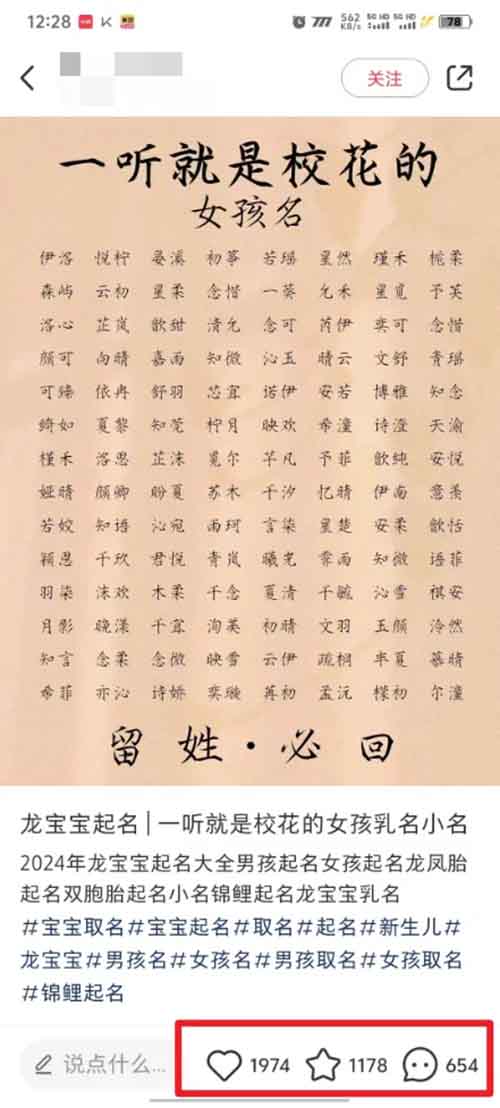 12:28
562 KB/s 5G HD 5G HD 78
关注
一听就是校花的
女孩名
伊洛 悦柠 晏溪 初筝 若瑶 星然 瑾禾 栀柔
森屿 云初 星柔 念惜 一葵 允禾 星觅 予芙
洛心 芷岚 歆甜 清允 念可 芮伊 奕可 念惜
颜可 向晴 嘉雨 知微 沁玉 晴云 文舒 青瑶
可臻 依冉 舒羽 芯宜 诺伊 安若 博雅 知念
绮如 夏黎 知芫 柠月 映欢 希潼 诗滢 天渝
槿禾 洛思 芷沫 觅尔 芊凡 予菲 歆纯 安悦
娅晴 颜卿 盼夏 苏木 千汐 忆晴 伊南 意茶
若姣 知语 沁宛 雨珂 言染 星楚 安柔 歆恬
颖思 千玖 君悦 青岚 曦光 霏雨 知微 语菲
羽染 沫欢 木柔 千念 夏清 千毓 沁雪 祺安
月影 晚漾 千宜 洵英 初晴 文羽 玉颜 泠然
知言 念柔 念微 映雪 云伊 疏桐 半夏 慕晴
希菲 亦沁 诗娇 奕璇 苒初 孟沅 檬初 尔潼
留姓·必回
龙宝宝起名|一听就是校花的女孩乳名小名
2024年龙宝宝起名大全男孩起名女孩起名龙凤胎
起名双胞胎起名小名锦鲤起名龙宝宝乳名
#宝宝取名#宝宝起名#取名#起名#新生儿#
龙宝宝#男孩名#女孩名#男孩取名#女孩取名
#锦鲤起名
说点什么... 1974 1178 654